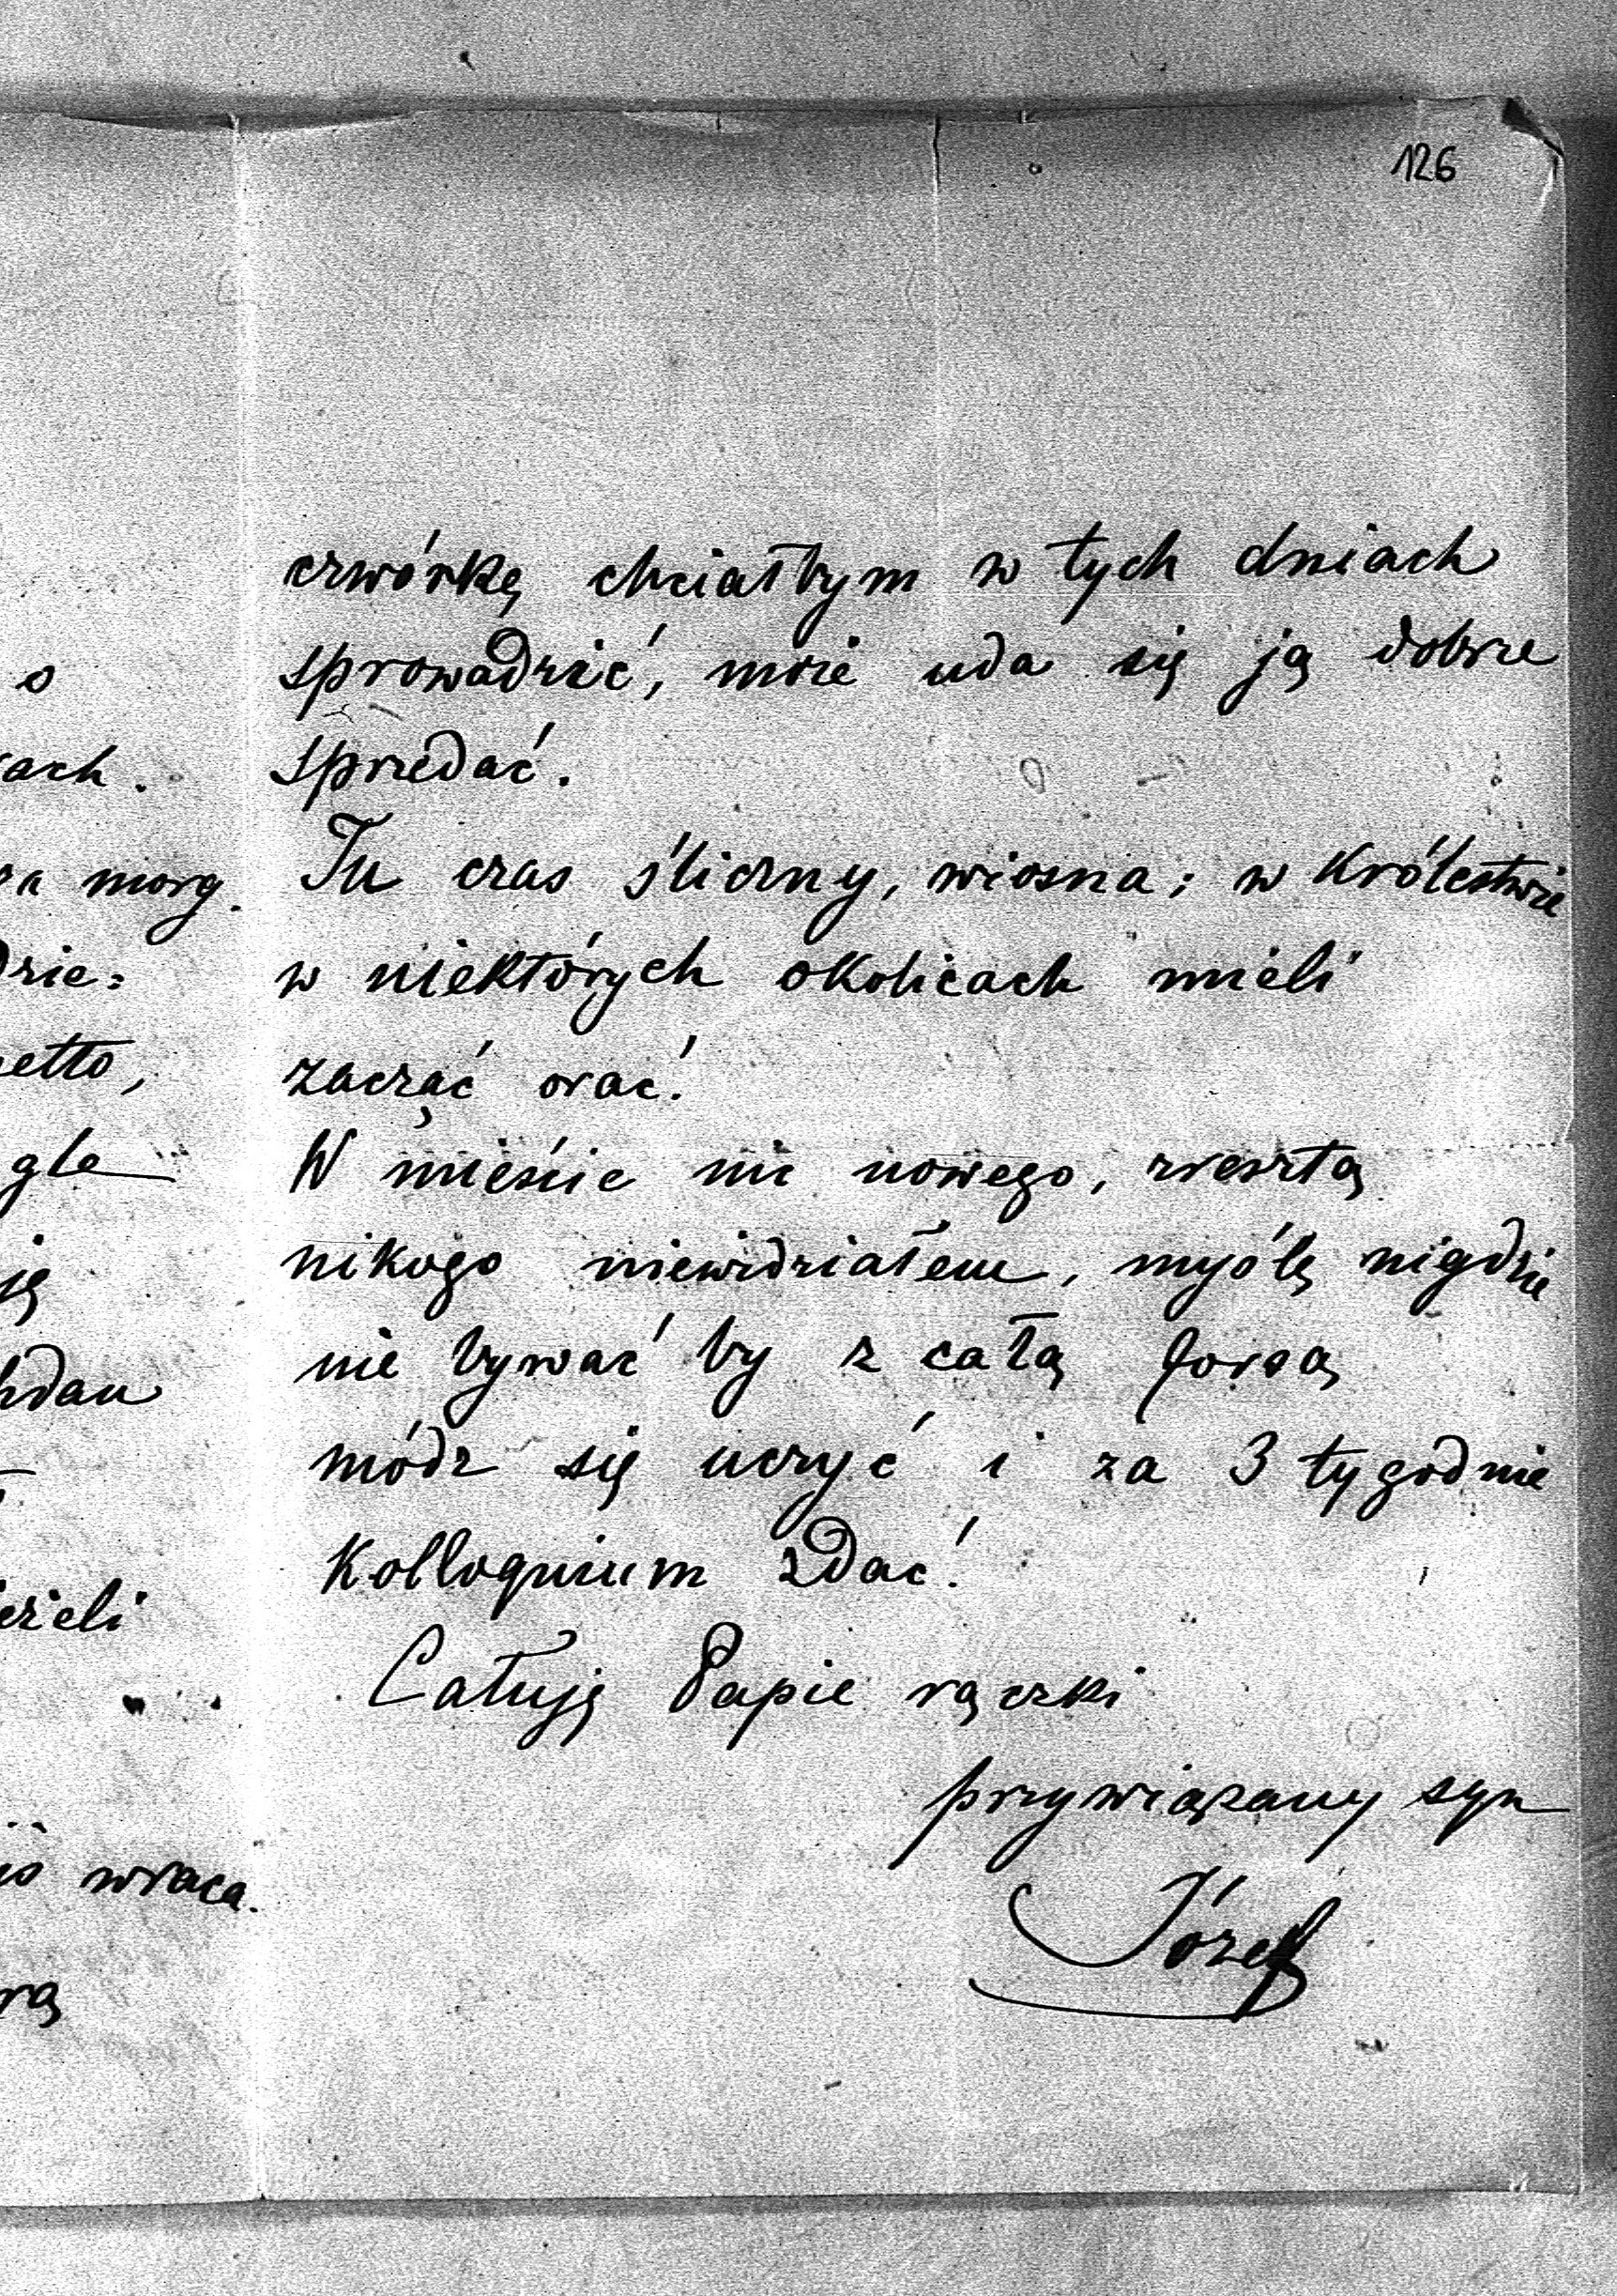 126
czwórkę chciałbym w tych dniach
sprowadzić, może uda się ją dobrze
sprzedać.
Tu czas śliczny, wiosna; w Królestwie
w niektórych okolicach mieli
zacząć orać.
W mieście nic nowego, zresztą
nikogo niewidziałem, myślę nigdzie
nie bywać by z całą forsą
módz się uczyć i za 3 tygodnie
Kolloquium zdać.
Całuję Papie rączki
przywiązany syn
Józef
o
ach.
za morg.
dzie=
netto,
gle
ję
hdan
eżeli
iś wraca.
rą